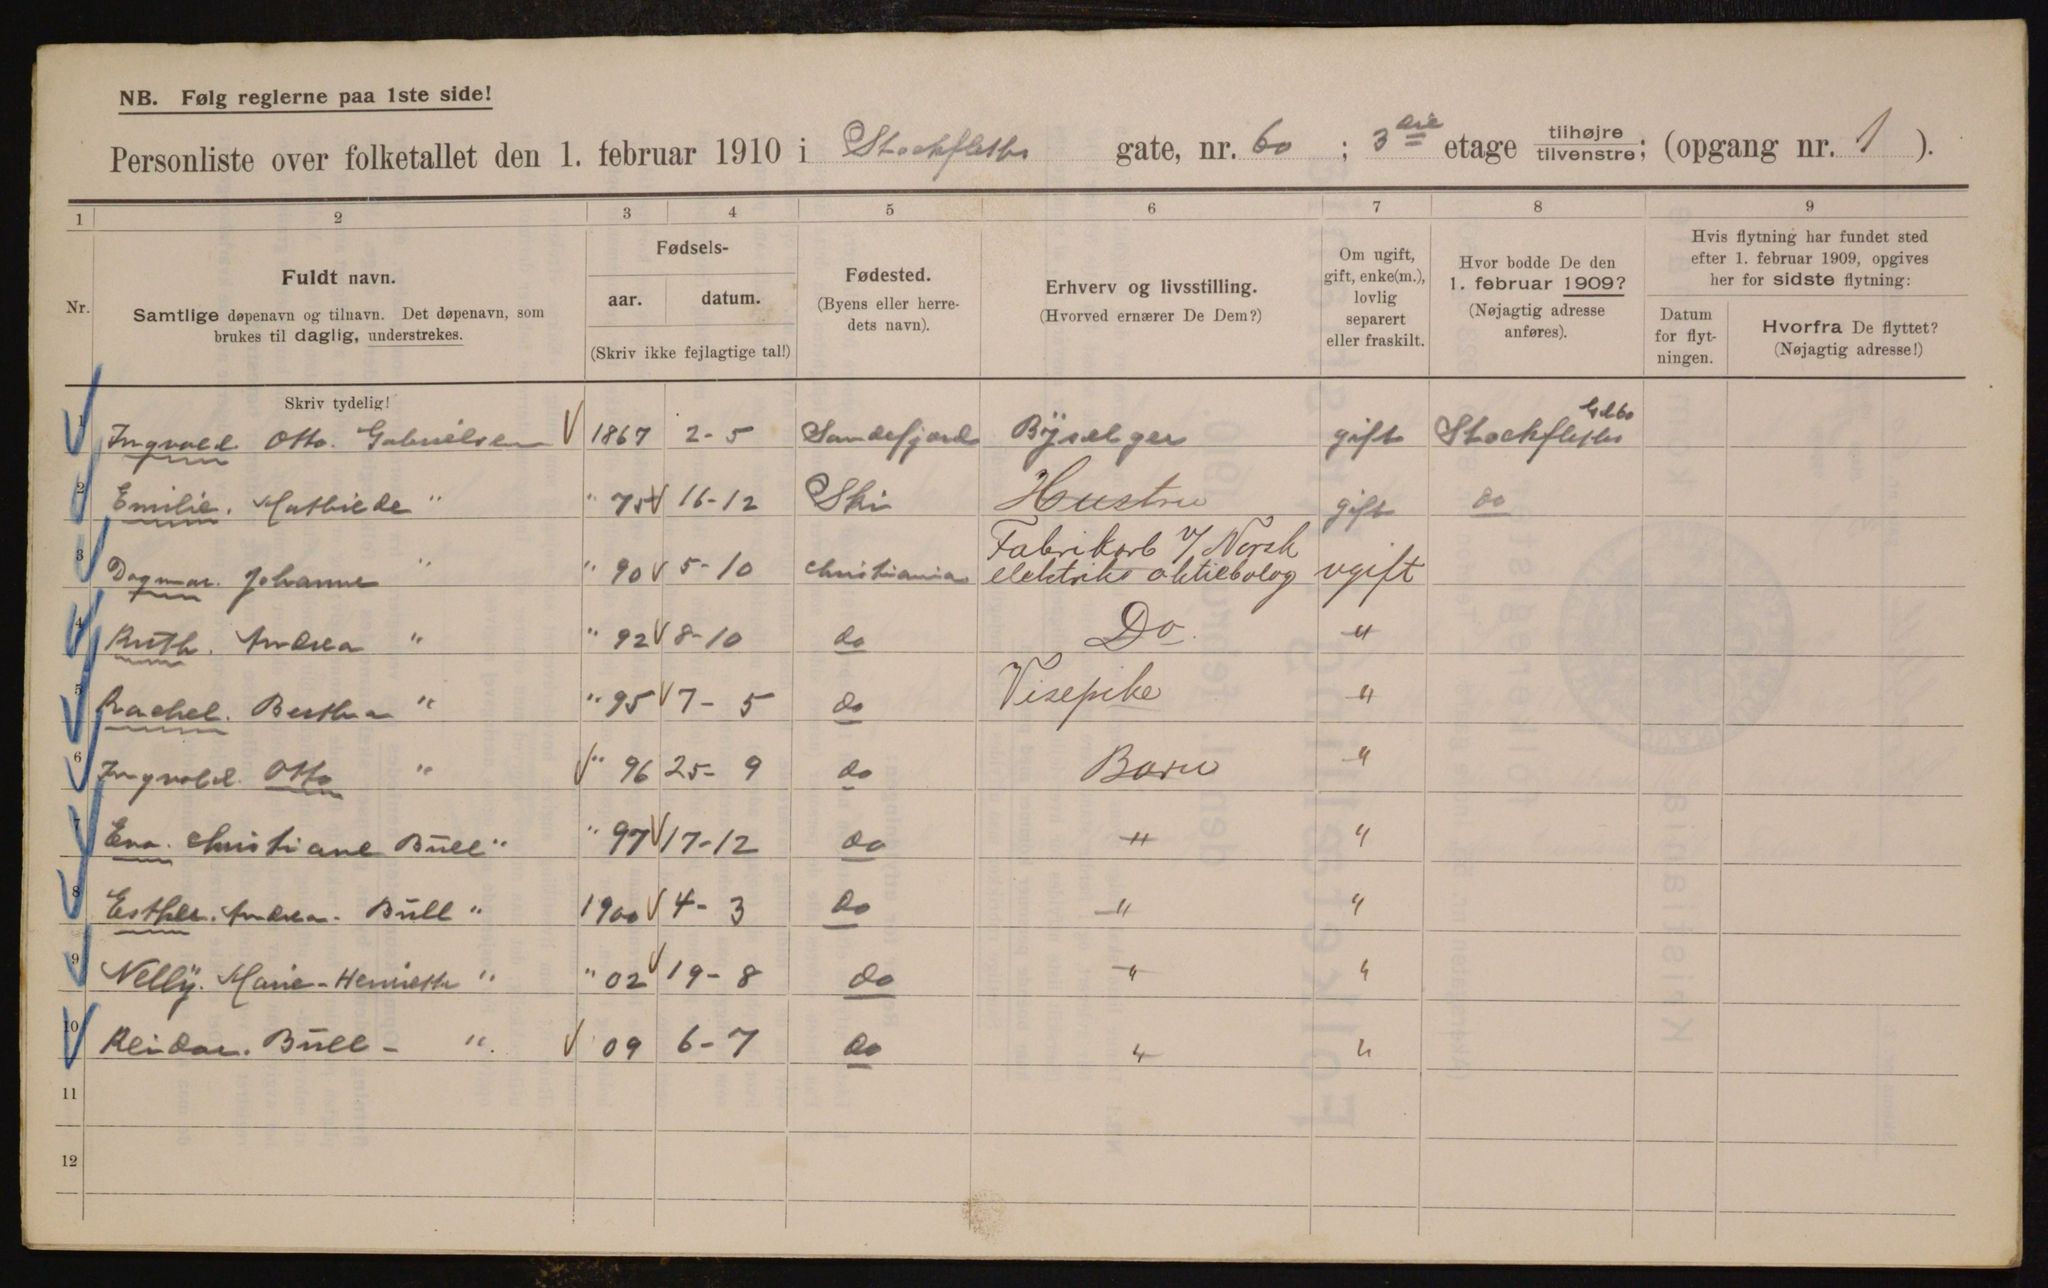 NB. Følg reglerne paa 1ste side!
Personliste over folketallet den 1. februar 1910 i Stockfleths gate, nr. 60 ; 3die etage tilhøjre tilvenstre; (opgang nr. 1 ).
1 2 3 4 5 6 7 8 9
Nr.
Fuldt navn.
Samtlige døpenavn og tilnavn. Det døpenavn, som
brukes til daglig, understrekes.
Skriv tydelig!
Fødsels-
aar. datum.
(Skriv ikke fejlagtige tal!)
Fødested.
(Byens eller herre-
dets navn).
Erhverv og livsstilling.
(Hvorved ernærer De Dem?)
Om ugift,
gift, enke(m.),
lovlig
separert
eller fraskilt.
Hvor bodde De den
1. februar 1909?
(Nøjagtig adresse
anføres).
Hvis flytning har fundet sted
efter 1. februar 1909, opgives
her for sidste flytning:
Datum
for flyt-
ningen.
Hvorfra De flyttet?
(Nøjagtig adresse!)
1 Ingvald Otto. Gabrielsen 1867 2-5 Sandefjord gift Stockfleths Gd 60
2 Emilie. Mathilde " " 75 16-12 Ski Hustru gift do
3 Dagmar. Johanne " " 90 5-10 Christiania Fabrikarb v/ Norsk
elektriks aktiebolog ugift
4 Ruth. Andrea " " 92 8-10 do Do. "
5 Rachel. Bertha " " 95 7-5 do Visepike "
6 Ingvald. Otto " " 96 25-9 do Barn "
7 Eva. Christiane Bull " " 97 17-12 do " "
8 Esther. Andrea. Bull " 1900 4-3 do " "
9 Nelly. Marie-Henriette " " 02 19-8 do " "
10 Reidar. Bull - " 09 6-7 do " "
11
12